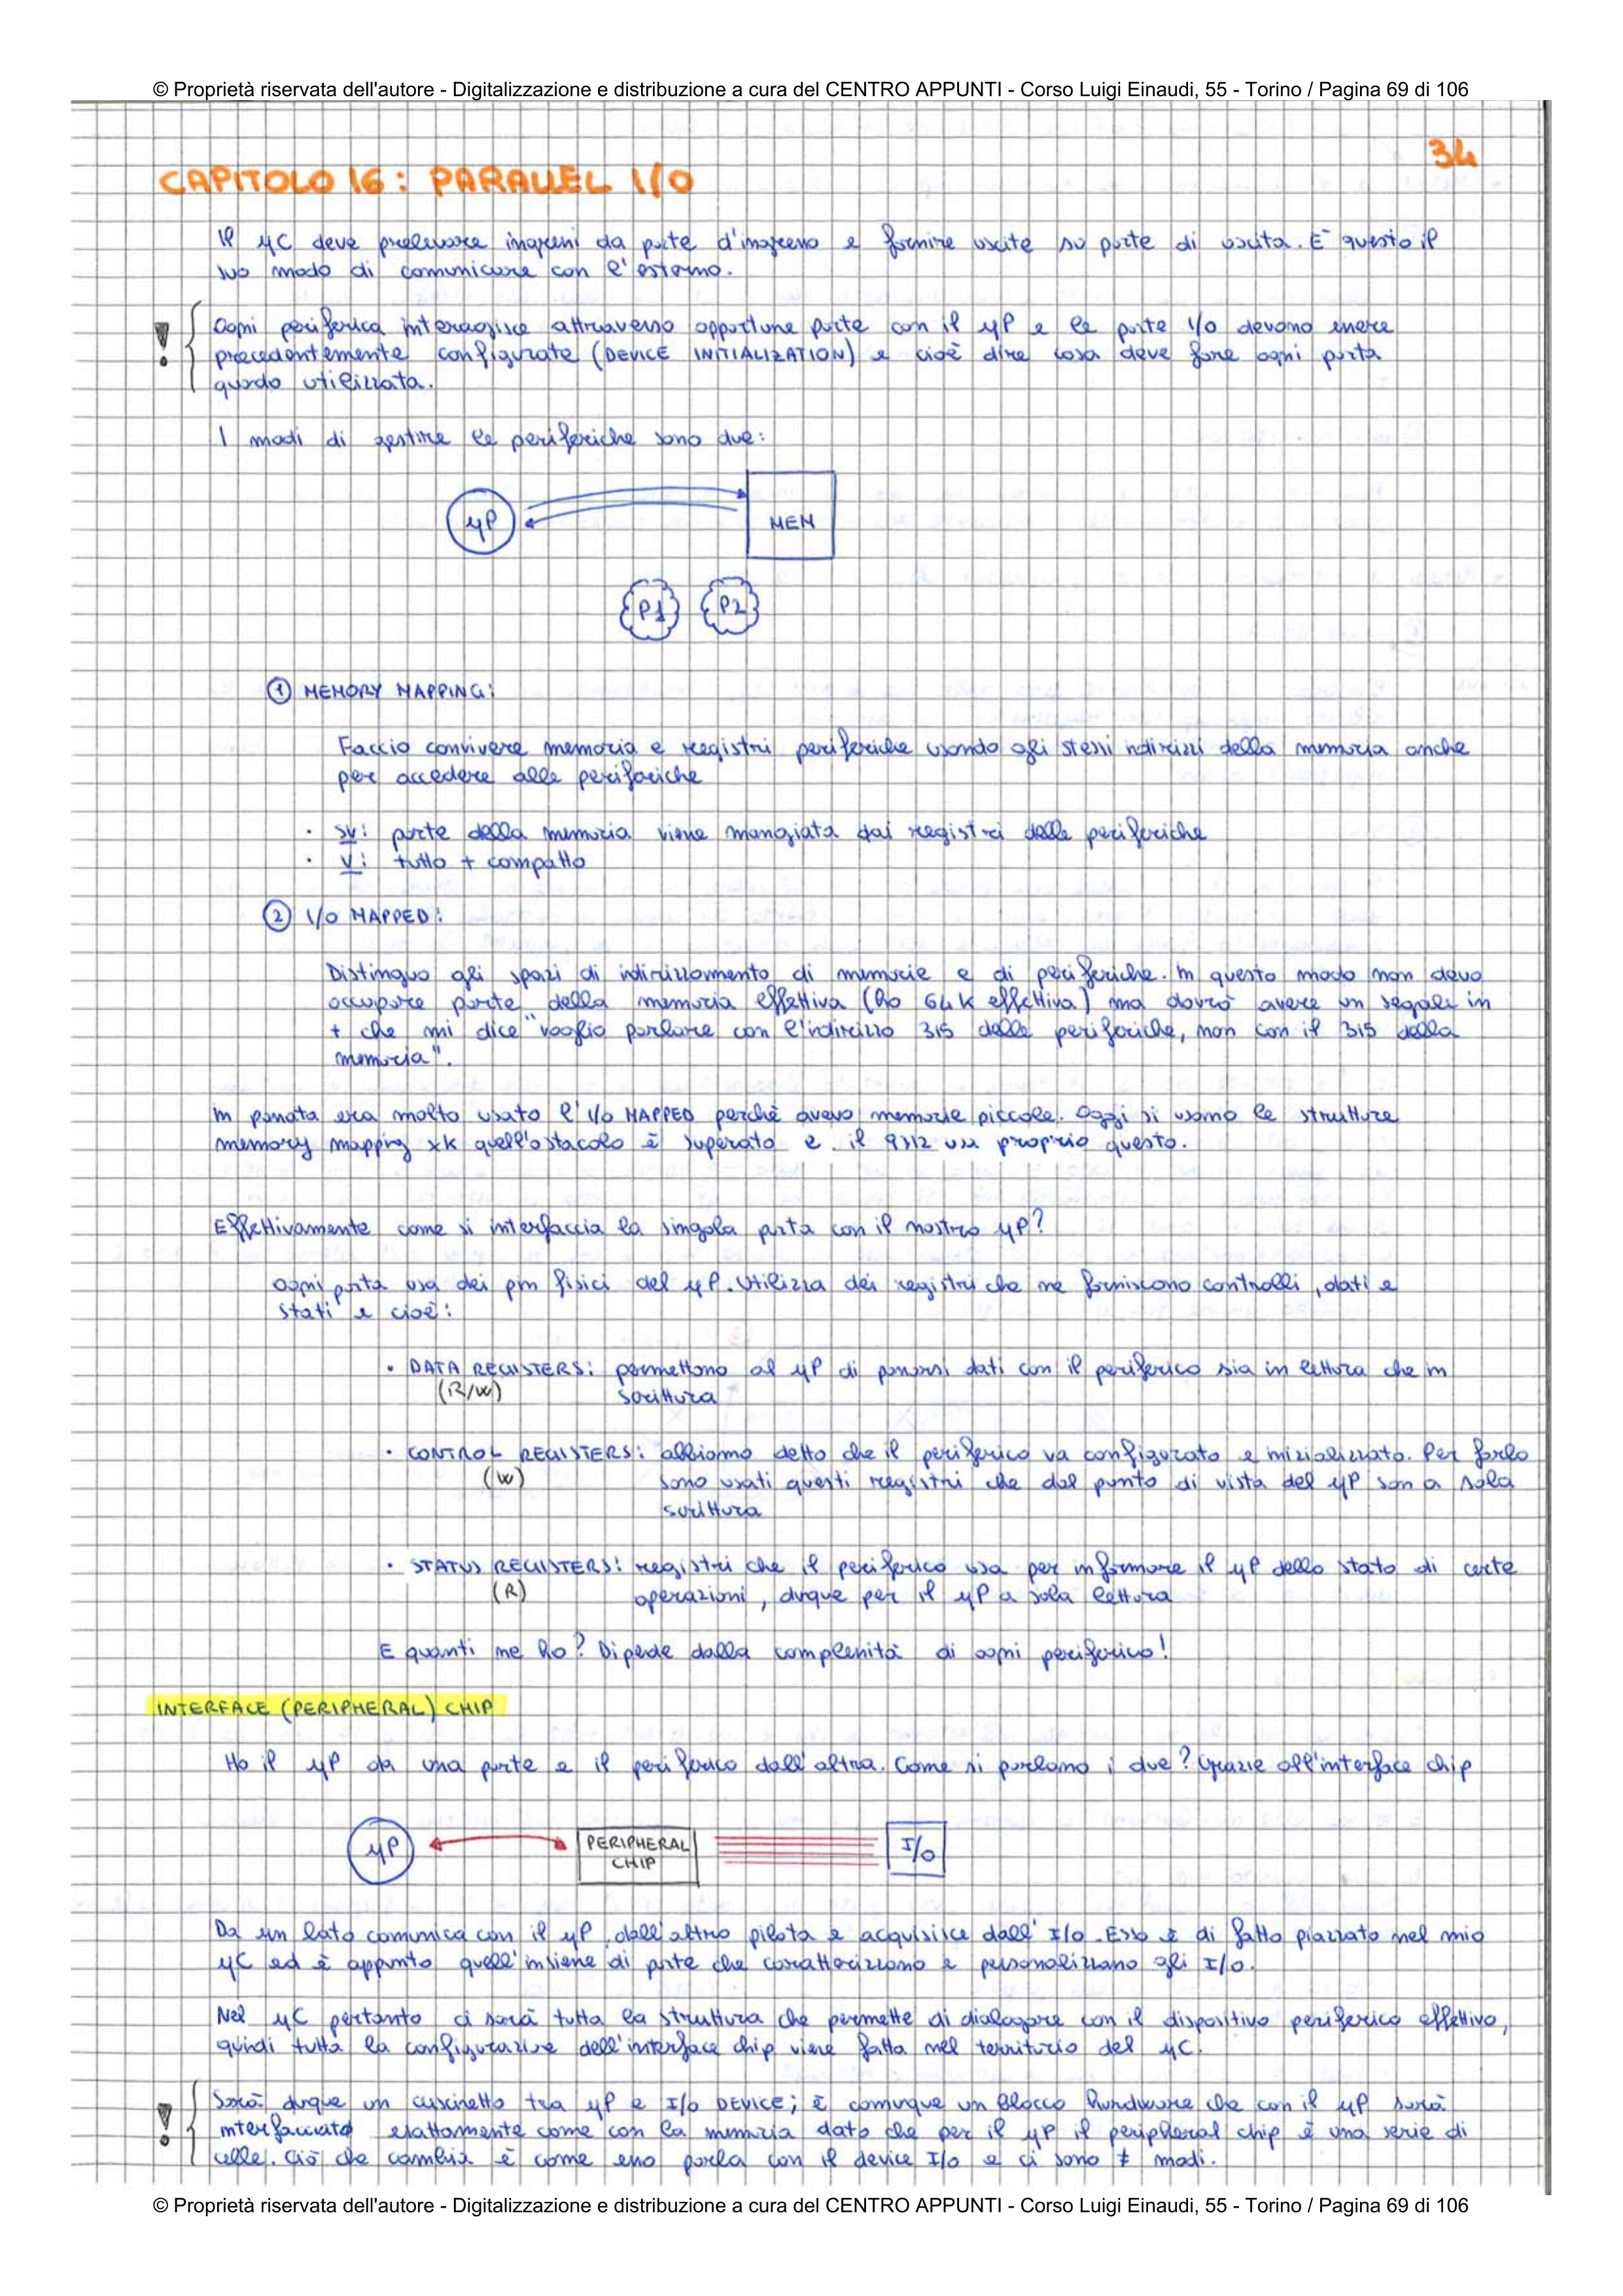 © Proprietà riservata dell'autore - Digitalizzazione e distribuzione a cura del CENTRO APPUNTI - Corso Luigi Einaudi, 55 - Torino / Pagina 69 di 106
34
CAPITOLO 16: PARALLEL I/O
Il μC deve prelevare ingressi da porte d'ingresso e fornire uscite su porte di uscita. E' questo il
suo modo di comunicare con l'esterno.
! Ogni periferica interagisce attraverso opportune porte con il μP e le porte I/O devono essere
precedentemente configurate (DEVICE INITIALIZATION) e cioè dire cosa deve fare ogni porta
quando utilizzata.
I modi di gestire le periferiche sono due:
μP MEM
P1 P2
① MEMORY MAPPING:
Faccio convivere memoria e registri periferiche usando gli stessi indirizzi della memoria anche
per accedere alle periferiche
· SV: parte della memoria viene mangiata dai registri delle periferiche
· V: tutto + compatto
② I/O MAPPED:
Distinguo gli spazi di indirizzamento di memorie e di periferiche. In questo modo non devo
occupare parte della memoria effettiva (ho 64K effettiva) ma dovrò avere un segnale in
+ che mi dice "voglio parlare con l'indirizzo 315 delle periferiche, non con il 315 della
memoria".
In passato era molto usato l'I/O MAPPED perchè avevo memorie piccole. Oggi si usano le strutture
memory mapping xk quell'ostacolo è superato e il 9S12 usa proprio questo.
Effettivamente come si interfaccia la singola porta con il nostro μP?
Ogni porta usa dei pin fisici del μP. Utilizza dei registri che ne forniscono controlli, dati e
stati e cioè:
· DATA REGISTERS: permettono al μP di passarsi dati con il periferico sia in lettura che in
(R/W) scrittura
· CONTROL REGISTERS: abbiamo detto che il periferico va configurato e inizializzato. Per farlo
(W) sono usati questi registri che dal punto di vista del μP son a sola
scrittura
· STATUS REGISTERS: registri che il periferico usa per informare il μP dello stato di certe
(R) operazioni, dunque per il μP a sola lettura
E quanti ne ho? Dipende dalla complessità di ogni periferico!
INTERFACE (PERIPHERAL) CHIP
Ho il μP da una parte e il periferico dall'altra. Come si parlano i due? Grazie all'interface chip
μP PERIPHERAL I/O
CHIP
Da un lato comunica con il μP, dall'altro pilota e acquisisce dall'I/O. Esso è di fatto piazzato nel mio
μC ed è appunto quell'insieme di porte che caratterizzano e personalizzano gli I/O.
Nel μC pertanto ci sarà tutta la struttura che permette di dialogare con il dispositivo periferico effettivo,
quindi tutta la configurazione dell'interface chip viene fatta nel territorio del μC.
! Sarà dunque un cuscinetto tra μP e I/O DEVICE; è comunque un blocco hardware che con il μP sarà
interfacciato esattamente come con la memoria dato che per il μP il peripheral chip è una serie di
celle. Ciò che cambia è come esso parla con il device I/O e ci sono ≠ modi.
© Proprietà riservata dell'autore - Digitalizzazione e distribuzione a cura del CENTRO APPUNTI - Corso Luigi Einaudi, 55 - Torino / Pagina 69 di 106